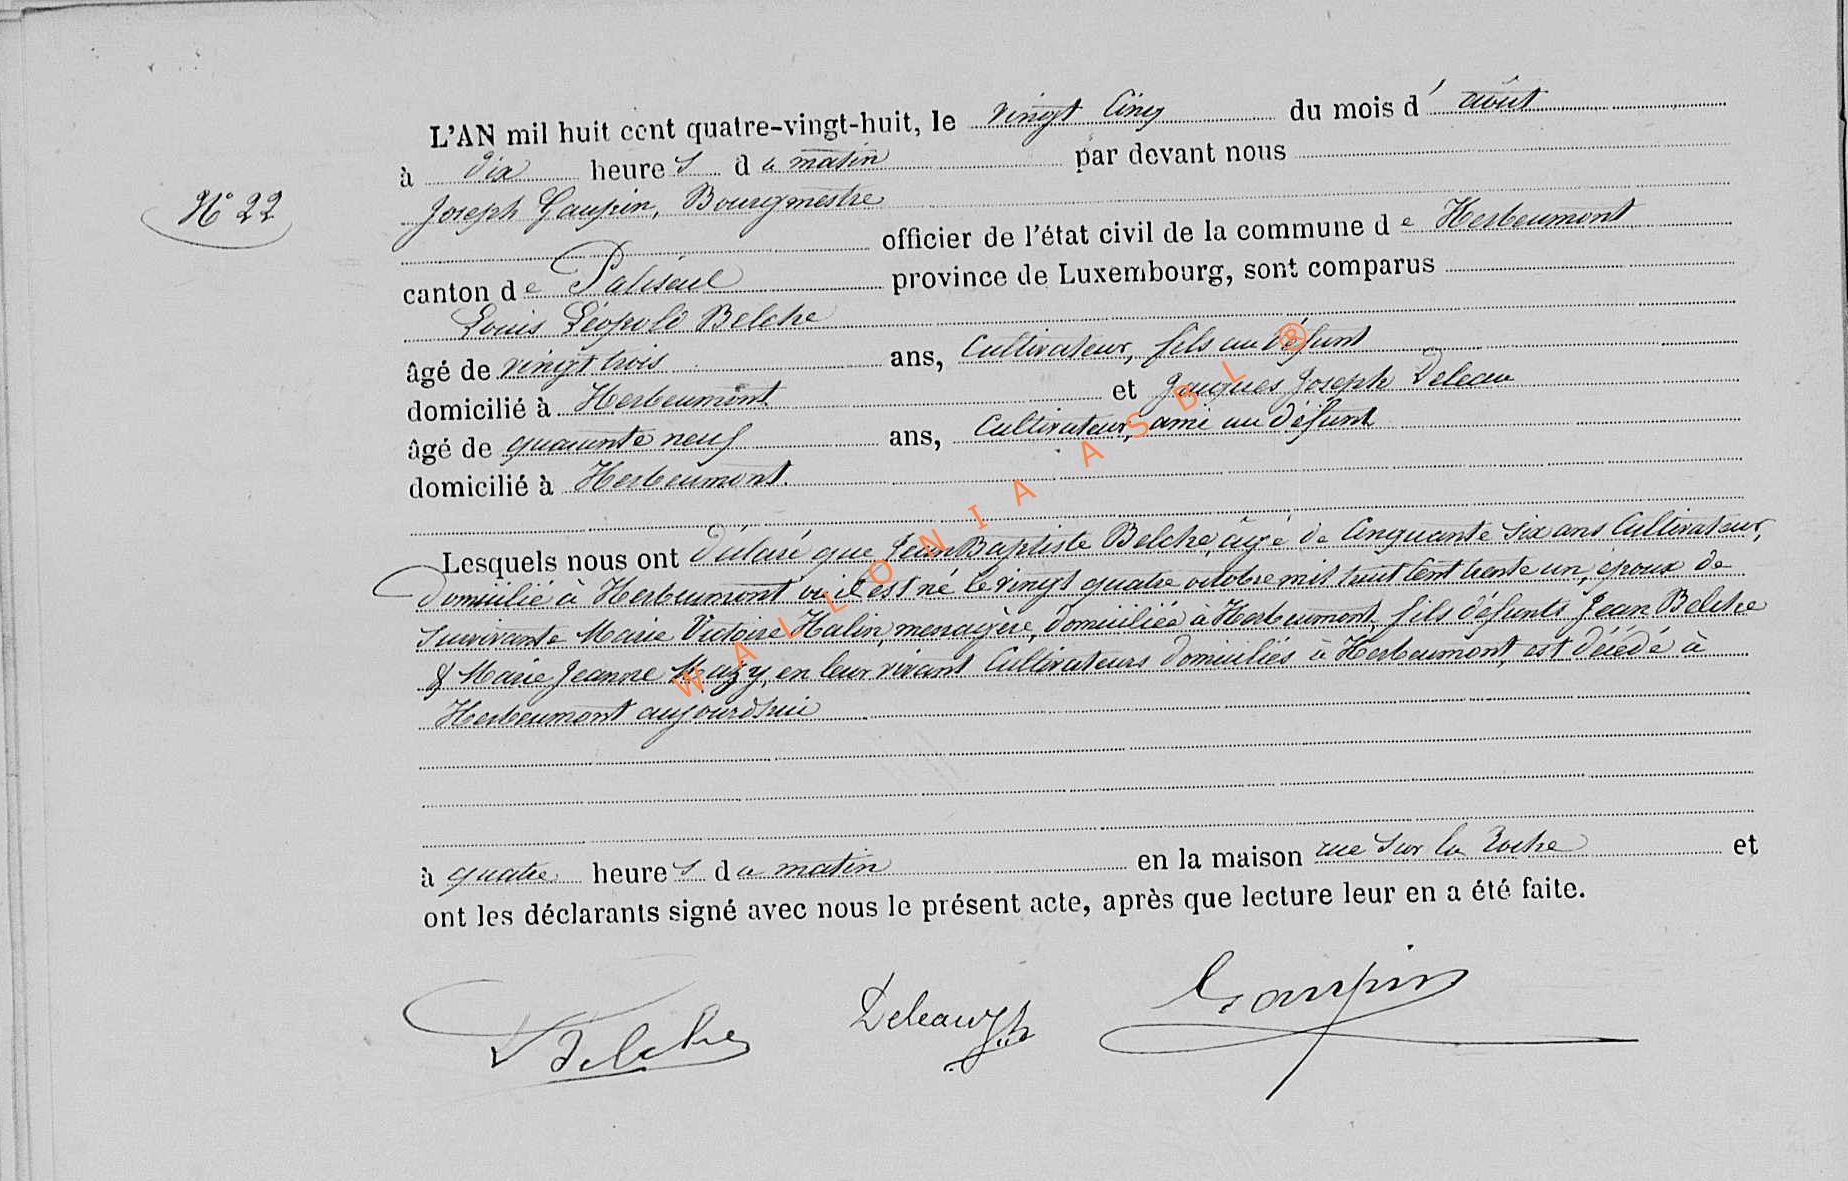 L'AN mil huit cent quatre-vingt-huit, le vingt cinq du mois d' août
à dix heures du matin par devant nous
N° 22
Joseph Gaupin, Bourgmestre
officier de l'état civil de la commune de Herbeumont
canton de Paliseul province de Luxembourg, sont comparus
Louis Léopold Belche
âgé de vingt trois ans, Cultivateur, fils au défunt
domicilié à Herbeumont et Jacques Joseph Deleau
âgé de quarante neuf ans, Cultivateur, ami au défunt
domicilié à Herbeumont.
Lesquels nous ont déclaré que Jean Baptiste Belche, âgé de Cinquante Six ans Cultivateur,
domicilié à Herbeumont où il est né le vingt quatre octobre mil huit cent trente un, époux de
survivante Marie Victoire Halin, menagère, domiciliée à Herbeumont, fils défunts Jean Belche
& Marie Jeanne Muzy, en leur vivant Cultivateurs domiciliés à Herbeumont, est décédé à
Herbeumont aujourd'hui
à quatre heures du matin en la maison rue Sur la Roche et
ont les déclarants signé avec nous le présent acte, après que lecture leur en a été faite.
Belche Deleau Jh Gaupin
WALLONIA ASBL ®